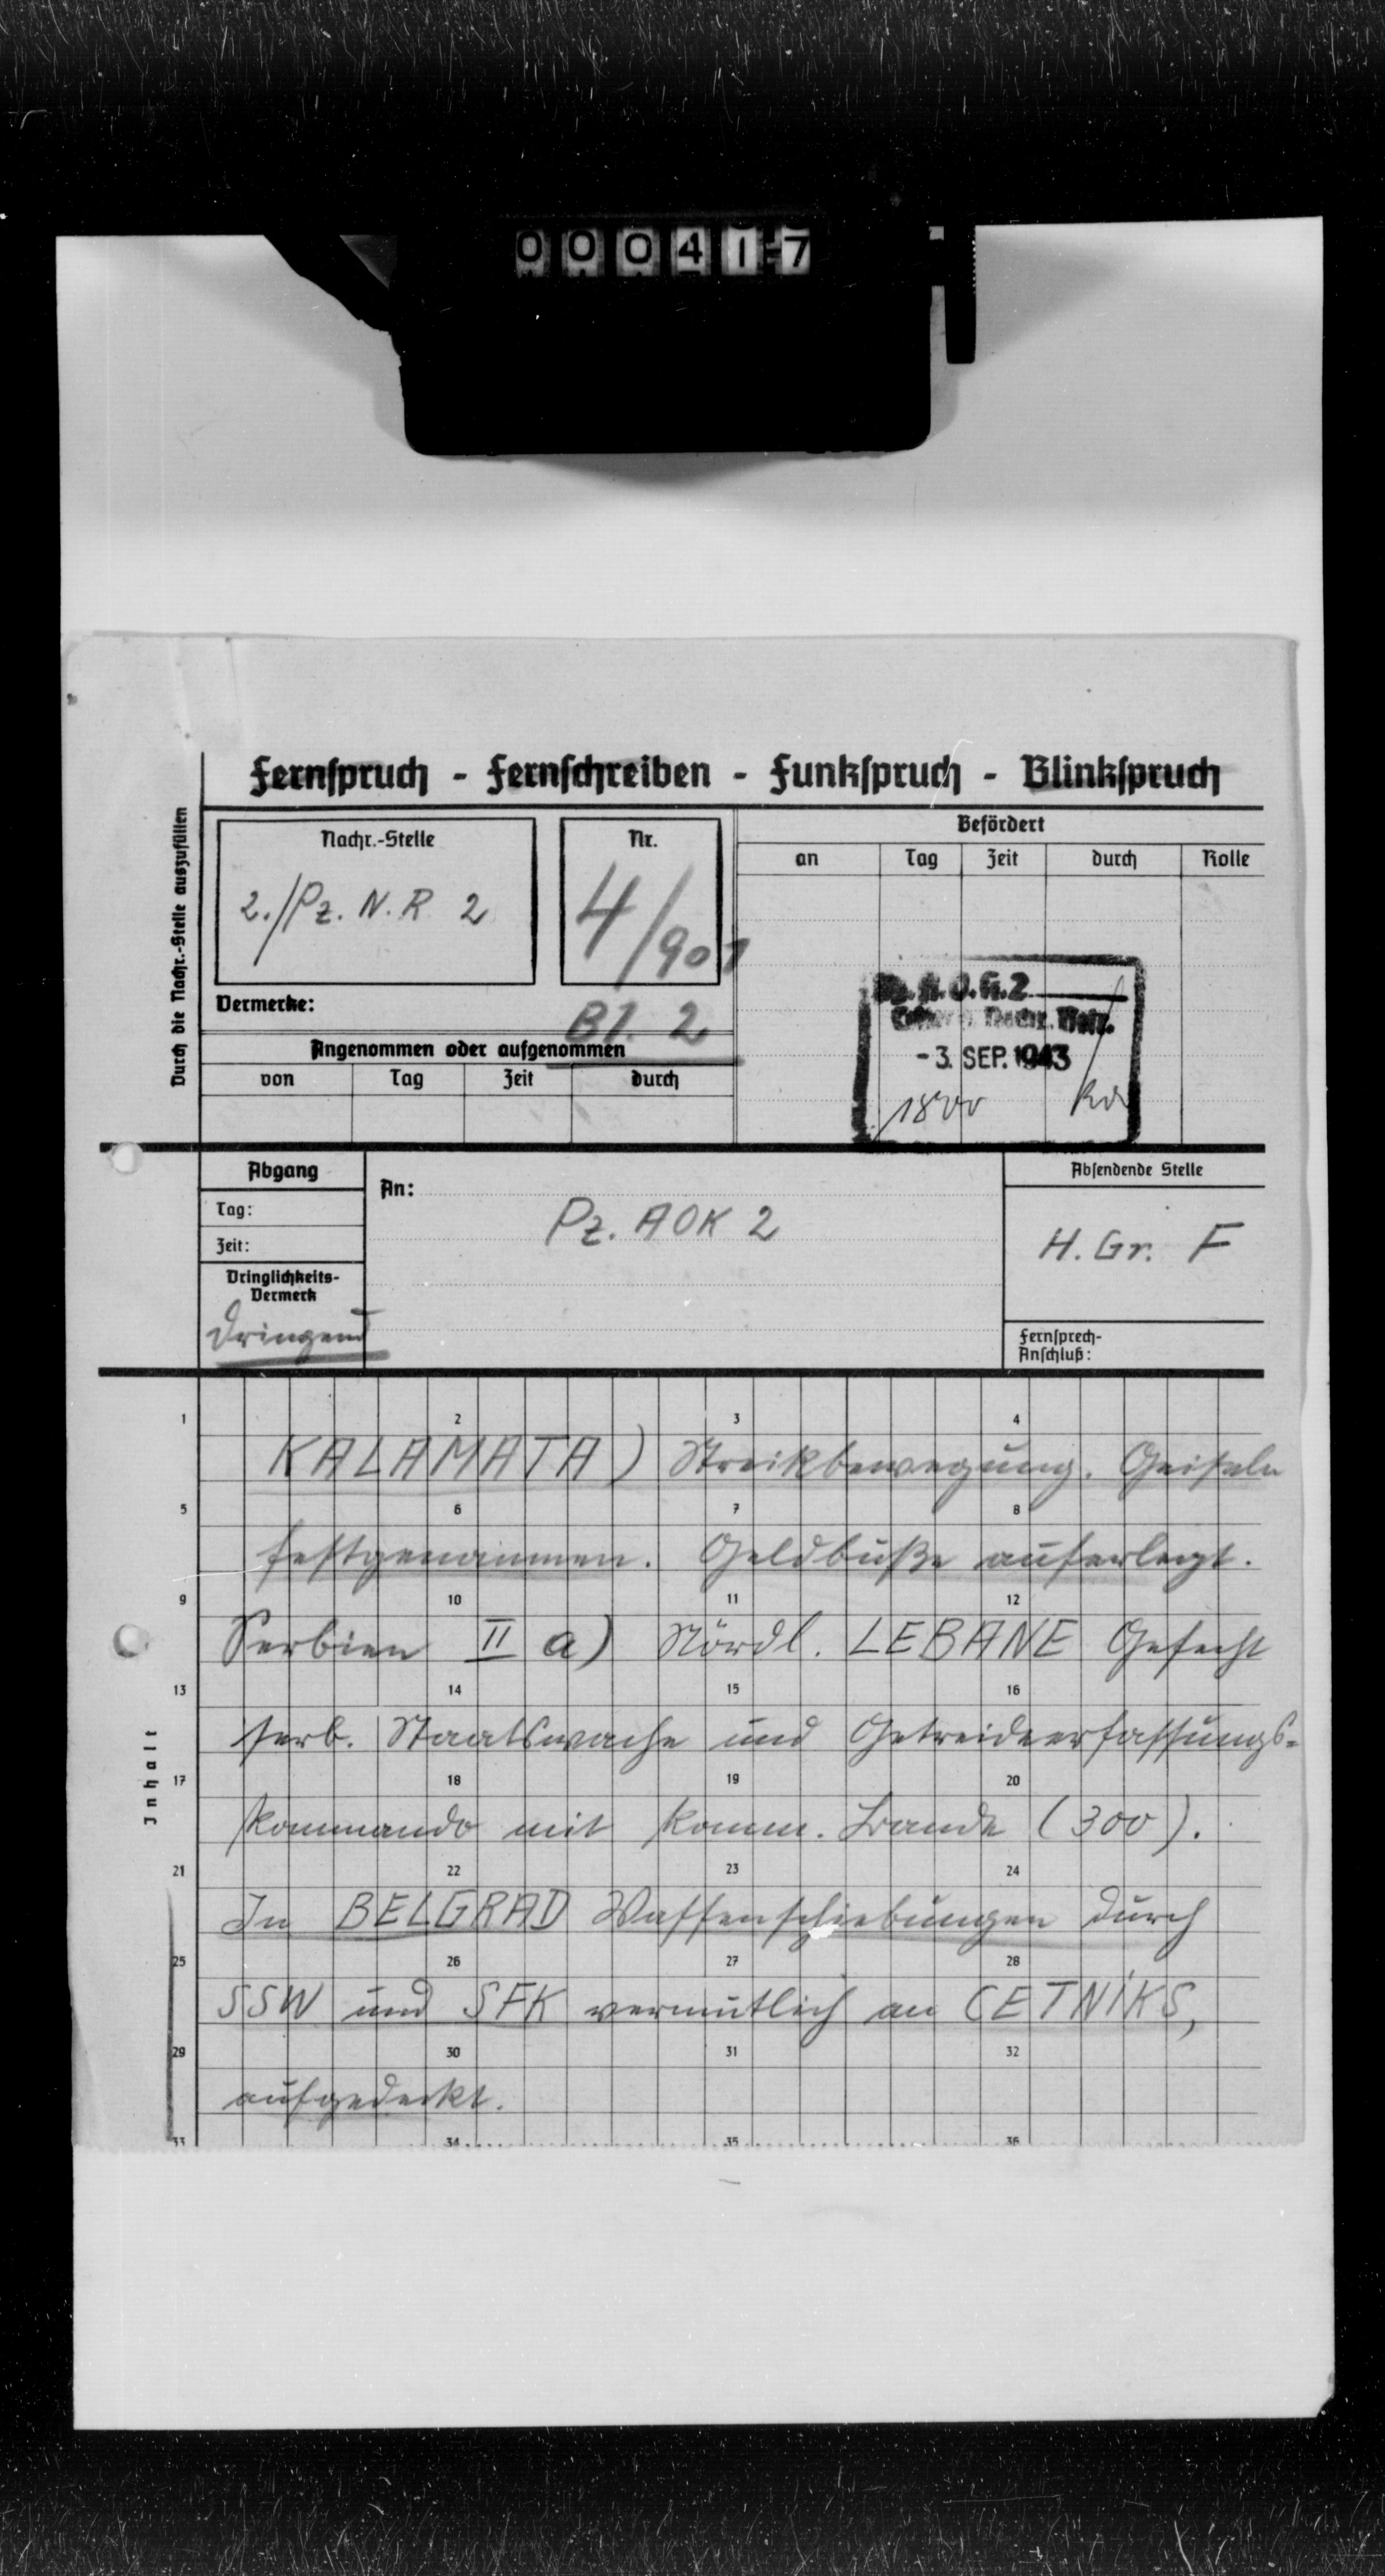 000417
Fernspruch - Fernschreiben - Funkspruch - Blinkspruch
Durch die Nachr.-Stelle auszufüllen
Nachr.-Stelle
2./Pz. N. R 2
Nr.
4/901
Vermerke:
Bl. 2
Angenommen oder aufgenommen
von Tag Zeit durch
Befördert
an Tag Zeit durch Rolle
- 3. SEP. 1943
1800
Abgang
Tag:
Zeit:
Dringlichkeits-
Vermerk
Dringend
An:
Pz. AOK 2
Absendende Stelle
H. Gr. F
Fernsprech-
Anschluß:
Inhalt
1 2 3 4
KALAMATA) Streikbewegung. Geiseln
5 6 7 8
festgenommen. Geldbuße auferlegt.
9 10 11 12
Serbien II a) Nördl. LEBANE Gefecht
13 14 15 16
serb. Staatswache und Getreideerfassungs=
17 18 19 20
kommando mit komm. Bande (300).
21 22 23 24
In BELGRAD Waffenschiebungen durch
25 26 27 28
SSW und SFK vermutlich an CETNIKS,
29 30 31 32
aufgedeckt.
33 34 35 36